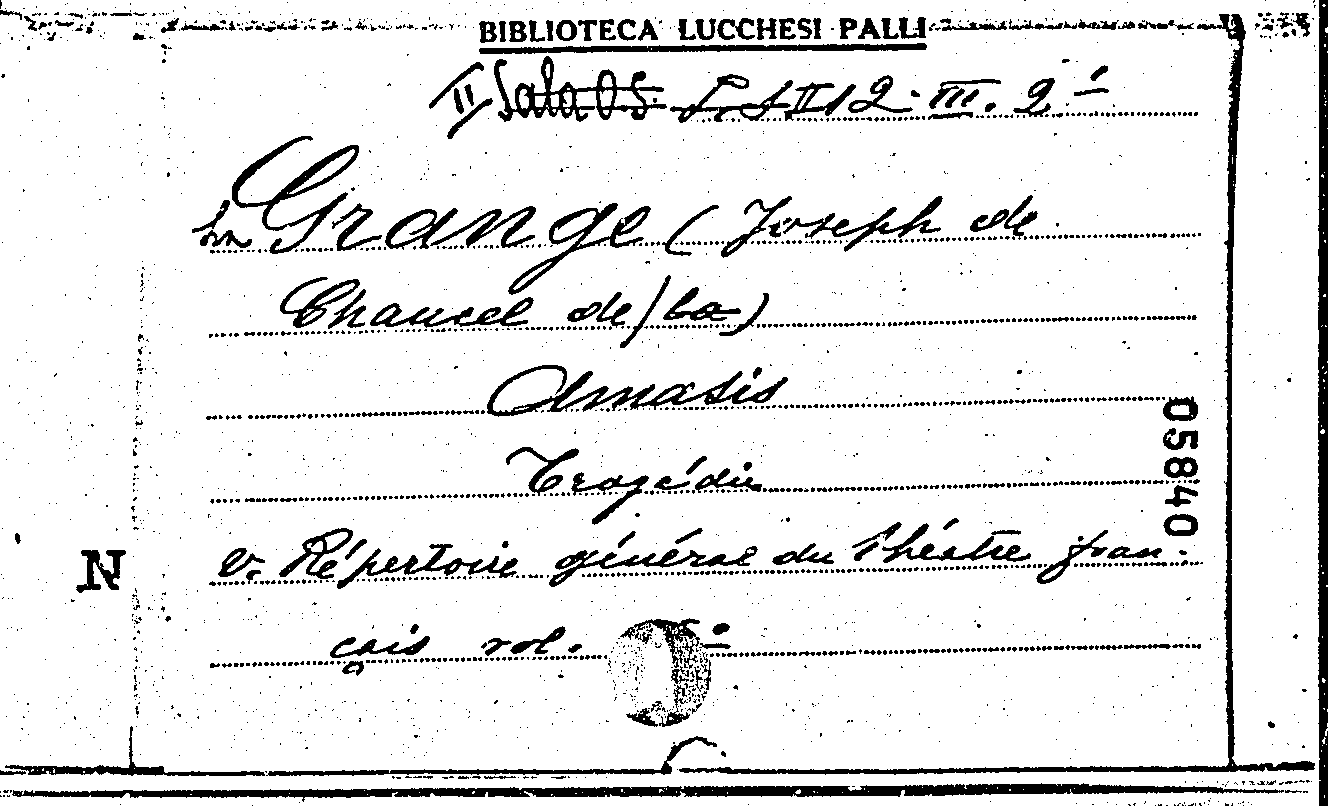 BIBLIOTECA LUCCHESI PALLI
II Sala 05. III. 2
La Grange (Joseph de
Chancel de/La)
Amasis
Tragédie
05840
v. Répertoire général du Théâtre fran-
N
çais vol.